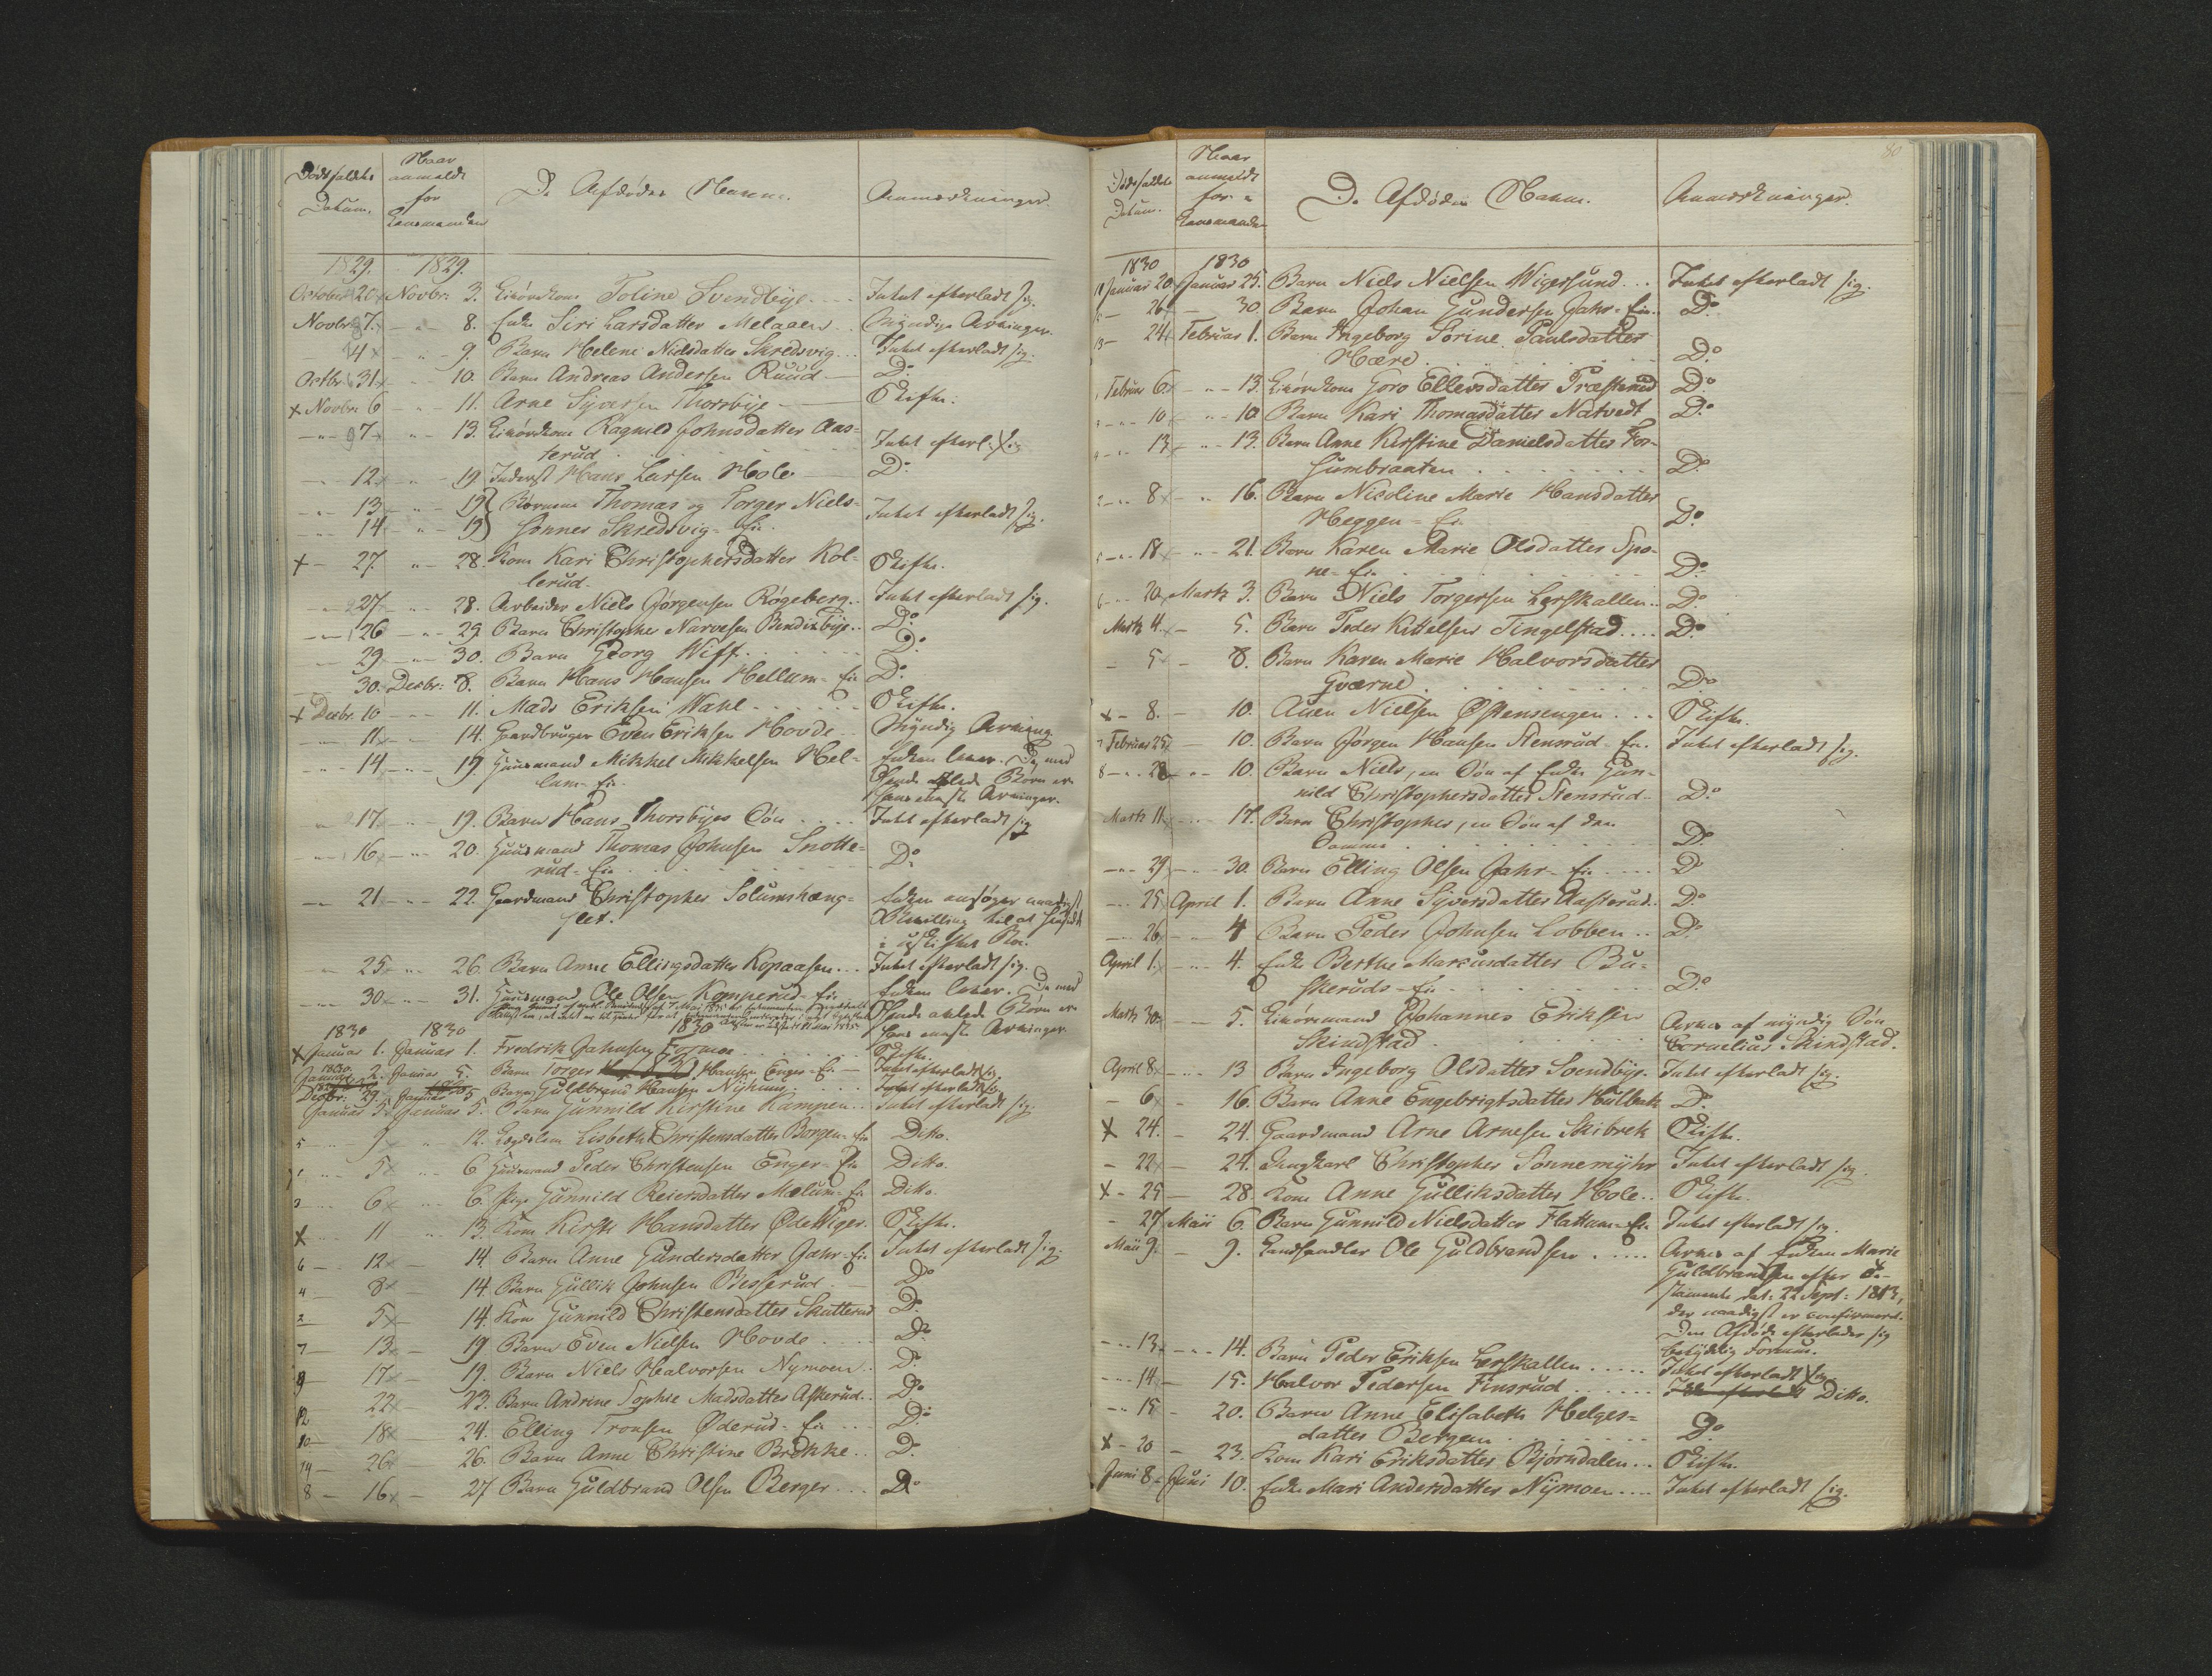 Dødsfaldets Datum.
Naar anmeldt for Lensmanden
De Afdødes Navne.
Anmærkninger.
1829. 1829.
October 20 Novbr: 3. Toline Svendbye Intet efterladt sig.
Novbr. 7. - " - 8. Enke Siri Larsdatter Melaaen Myndige Arvinger.
4 - " - 9. Barn Helene Nielsdatter Skredsvig... Intet efterladt sig.
Octbr 31 - " - 10. Barn Andreas Andersen Ruud D.o
x Novbr. 6 - " - 11. Arne Syversen Thorsbye Skifte.
- " - 7 - " - 13. Ragnild Johnsdatter Aas-
terud Intet efterl: sig
- " - 12 - " - 19 Inderst Hans Larsen Hole D.o
- " - 13 - " - 19 } Børnene Thomas og Torger Niels-
- " - 14 - " - 19 } sønner Skredsvig-Eie. Intet efterladt sig.
x - 27. " - 28. Kone Kari Christophersdatter Kol-
lerud. Skifte.
- 27 - " - 28. Arbeider Niels Jørgensen Røgeberg.. Intet efterladt sig.
- " - 26 - " - 29. Barn Christopher Narvesen Bendixbye.. D.o
- 29 - " - 30. Barn Georg Wiff D.o
30. Decbr: 8. Barn Hans Hansen Hellum-Eie D.o
x Decbr. 10 - " - 11. Mads Eriksen Wahl Skifte.
- " - 11 - " - 14. Gaardbruger Even Eriksen Hovde Myndig Arving.
- " - 14 - " - 19. Huusmand Mikkel Mikkelsen Hel-
lum-Eie. Enken lever. De med
hende avlede Børn er
hans eneste Arvinger.
17 - " - 19. Barn Hans Thorsbyes Søn .... Intet efterladt sig
- " - 16 - " - 20. Huusmand Thomas Johnsen Snotte-
rud-Eie D.o
- " 21 - " - 22. Gaardmand Christopher Solumshæng-
slet. Enken ansøger naadigst
Bevilling til at hensidde
i uskiftet Boe.
" 25 " - 26. Barn Anne Ellingsdatter Kopaasen... Intet efterladt sig.
- " - 30 - " - 31. Huusmand Ole Olsen Komperud-Eie Enken lever. De med
hende avlede Børn er
hans eneste Arvinger.
1830 1830 1830
x Januar 1. Januar 1. Fredrik Johnsen Skifte.
1830. Januar 2. Januar 5. Barn Torger Hansen Enger-Eie Intet efterladt sig.
Decbr: 29. Januar 5 Barn Guldbrand Hansen Intet efterladt sig.
Januar 5. Januar 5. Barn Gunnild Kirstine Kampen.. Intet efterladt sig.
5 " 9 " 12. Lægdslem Lisbeth Christensdatter Borgen-Eie Ditto.
" 5 " 6 Huusmand Peder Christensen Enger-Eie Ditto.
3 " 6 " 6. Pige Gunnild Reiersdatter Mælum-Eie Ditto.
x " 11 " 13. Kone Kirsti Hansdatter Øde Wiger. Skifte.
6 - 12 - 14. Barn Anne Gundersdatter Jahr-Eie Intet efterladt sig.
4 8 - 14. Barn Gullik Johnsen Besserud. D.o
2 - 5 - 14. Kone Gunnild Christensdatter Skutterud D.o
7 - 13 - 19 Barn Even Nielsen Hovde .... D.o
9 - 17 - 19. Barn Niels Halvorsen Nymoen.. D.o
22 - 23. Barn Andrine Sophie Madsdatter Askerud.. D.o
12
10 - 18 - 24. Elling Tronsen Øderud-Eie ... D.o
14 - 26 - 26. Barn Anne Christine Brekke.. D.o
8 - 16 - 27 Barn Guldbrand Olsen Berger... D.o
80
Dødsfaldets Datum.
Naar anmeldt for Lensmanden
De Afdødes Navne.
Anmærkninger.
1830 1830
11 Januar 20. Januar 25. Barn Niels Nielsen Wigersund... Intet efterladt sig.
- 26 - 30. Barn Johan Gundersen Jahr-Eie.. D.o
13 - 24 Februar 1. Barn Ingeborg Sorine Paulsdatter
Hære D.o
Februar 6 - " - 13. Goro Ellevsdatter Præsterud D.o
" 10 - " - 10. Barn Kari Thomasdatter Natvedt D.o
" 13 - " - 13. Barn Anne Kirstine Danielsdatter For-
humbraaten D.o
2 - " 8 - " 16. Barn Nicoline Marie Hansdatter
Heggen-Eie D.o
- " 18 - " - 21. Barn Karen Marie Olsdatter Spo-
ne-Eie D.o
6 - " 20 Martz 3. Barn Niels Torgersen Lerskallen.. D.o
Martz 4. - 5. Barn Peder Kittelsen Tingelstad.... D.o
- 5 - 8. Barn Karen Marie Halvorsdatter
Gværne D.o
x - 8. - 10. Auen Nielsen Østensengen... Skifte.
7 Februar 25 - 10. Barn Jørgen Hansen Stensrud-Eie. Intet efterladt sig.
8 - " 28 " - 10. Barn Niels, en Søn af Enke Gun-
nild Christophersdatter Stensrud. D.o
Martz 11 - " 17. Barn Christopher, en Søn af den
Samme D.o
- " 29 - " - 30. Barn Elling Olsen Jahr-Eie .... D.o
- " 25 April 1. Barn Anne Syversdatter Aasterud.. D.o
- " 26 - " 4 Barn Peder Johnsen Lobben .. D.o
April 1. - " 4. Enke Berthe Marcusdatter Bu-
skeruds-Eie D.o
Martz 30. - 5. Johannes Eriksen
Skindstad Arves af myndig Søn
Cornelius Skindstad.
April 8 - " 13 Barn Ingeborg Olsdatter Svendbye. Intet efterladt sig.
- 6 - 16. Barn Anne Engebrigtsdatter Hulbak D.o
x 24. - 24. Gaardmand Arne Arnesen Skibrek Skifte.
- 22 - 24. Ungkarl Christopher Sønnemyhr Intet efterladt sig.
x - 25 - 28. Kone Anne Gulliksdatter Hole.. Skifte.
- 27 Maii 6. Barn Gunnild Nielsdatter Flattum-Eie Intet efterladt sig.
Maii 9. - 9. Landhandler Ole Guldbrandsen ..... Arves af Enken Marie
Guldbrandsen efter Te-
stamente dat: 22 Sept: 1813,
der naadigst er confirmeret.
Den Afdøde efterlader sig
betydelig Formue.
- " 13 - " - 14. Barn Peder Eriksen Lerskallen ..... Intet efterladt sig.
- " 14 - 15. Halvor Pedersen Finsrud ...... Intet efterladt Ditto.
- " 15 - 20. Barn Anne Elisabeth Helges-
datter Bergan D.o
x - 20 - 23. Kone Kari Eriksdatter Bjørndalen.. Skifte.
Juni 8 - Juni 10. Enke Mari Andersdatter Nymoen.... Intet efterladt sig.